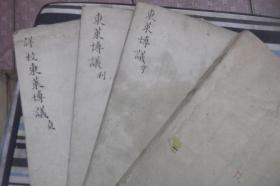 東萊博議亨
東萊博議利
評校東萊博議貞